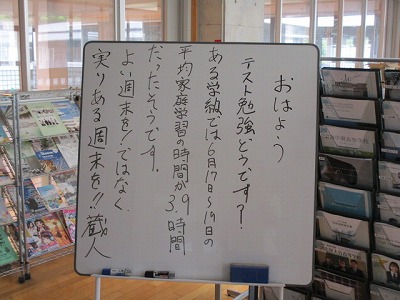 おはよう
テスト勉強どうです?
ある学級では6月17日〜19日の
平均家庭学習の時間が9
3.時間
だったそうです。
よい週末を!ではなく、
実りある週末を!!蔵人